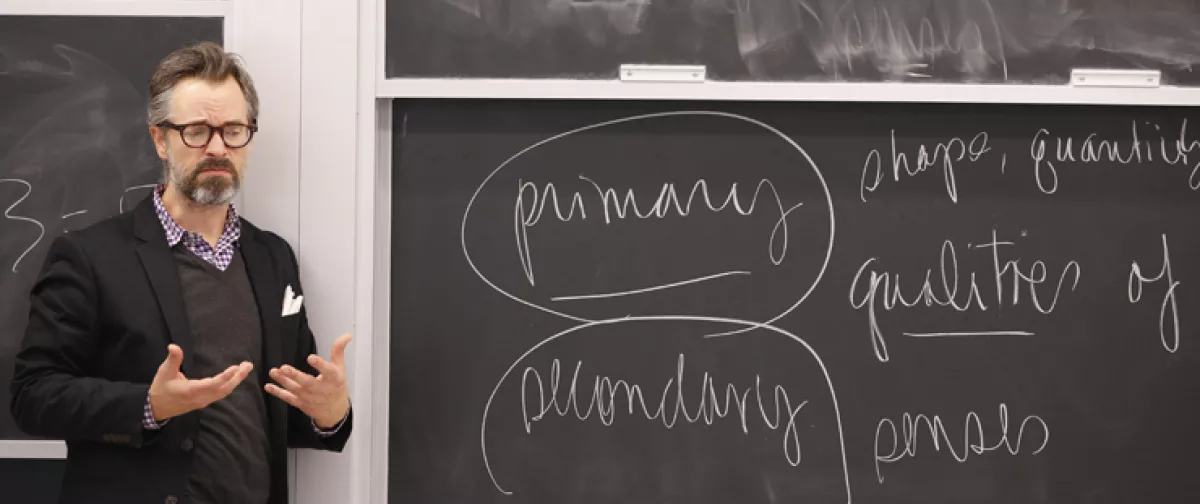 primary
secondary
shape, quantity
qualities of
senses